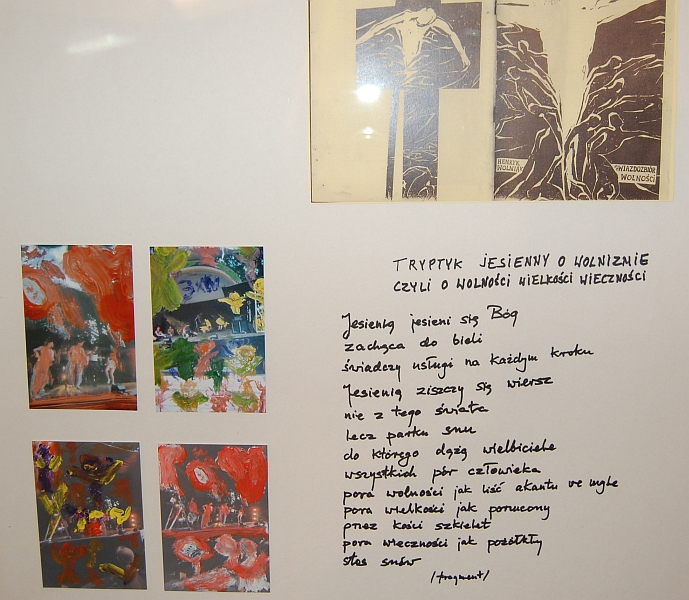 HENRYK
WOLNIAK
GWIAZDOZBIÓR
WOLNOŚCI
TRYPTYK JESIENNY O WOLNIZMIE
CZYLI O WOLNOŚCI WIELKOŚCI WIECZNOŚCI
Jesienią jesieni się Bóg
zachęca do bieli
świadczy usługi na każdym kroku
Jesienią ziszczy się wiersz
nie z tego świata
lecz parku snu
do którego dążą wielbiciele
wszystkich pór człowieka
pora wolności jak liść akantu we mgle
pora wielkości jak porzucony
przez kości szkielet
pora wieczności jak pożółkły
stos snów
/fragment/